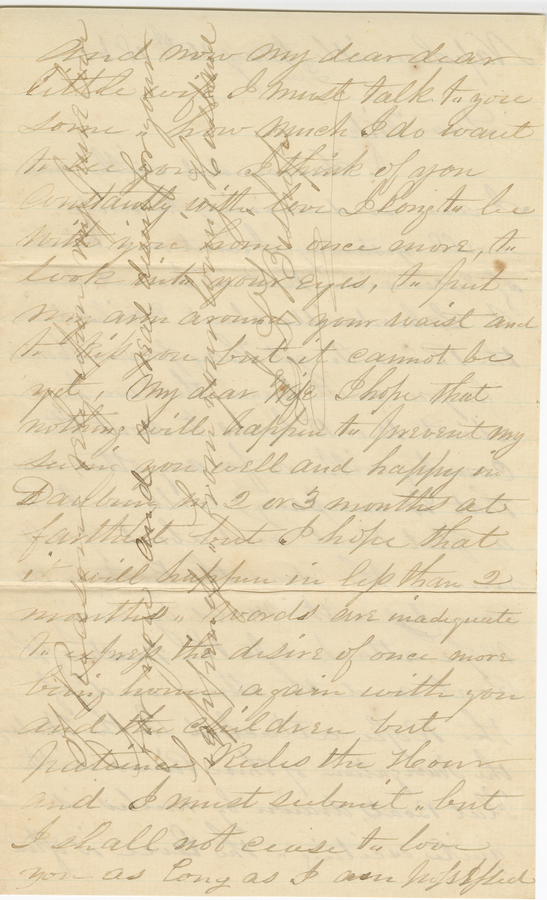 And now my dear dear
little wife I must talk to you
some, how much I do want
to see you, I think of you
Constantly with love I long to be
with you home once more, to
look into your eyes, to put
my arm around your waist and
to kiss you but it cannot be
yet, My dear Wife I hope that
nothing will happen to prevent my
seeing you well and happy in
Danbury in 2 or 3 months at
farthest but I hope that
it will happen in less than 2
months, words are inadequate
to express the desire of once more
being home again with you
and the children but
patience Rules the Hour
and I must submit, but
I shall not cease to love
you as long as I am possessed
and a
from your loving Husband